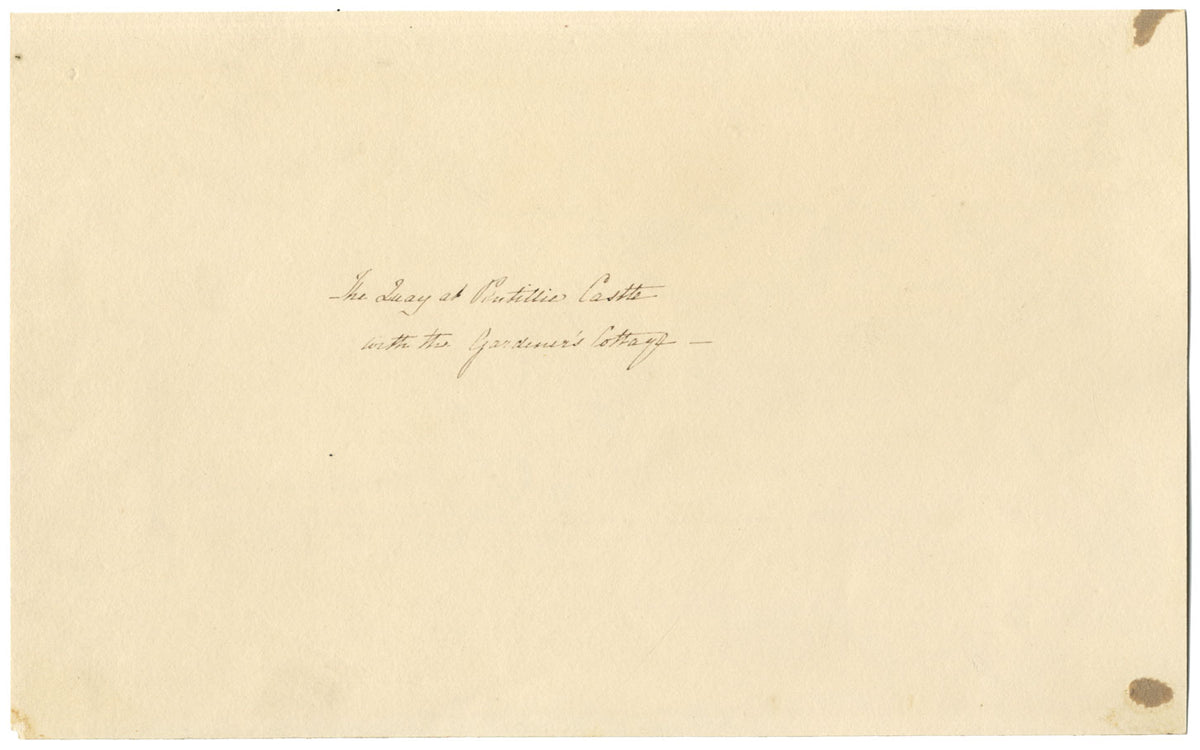 The Quay at Pentillie Castle
with the Gardener's Cottage —